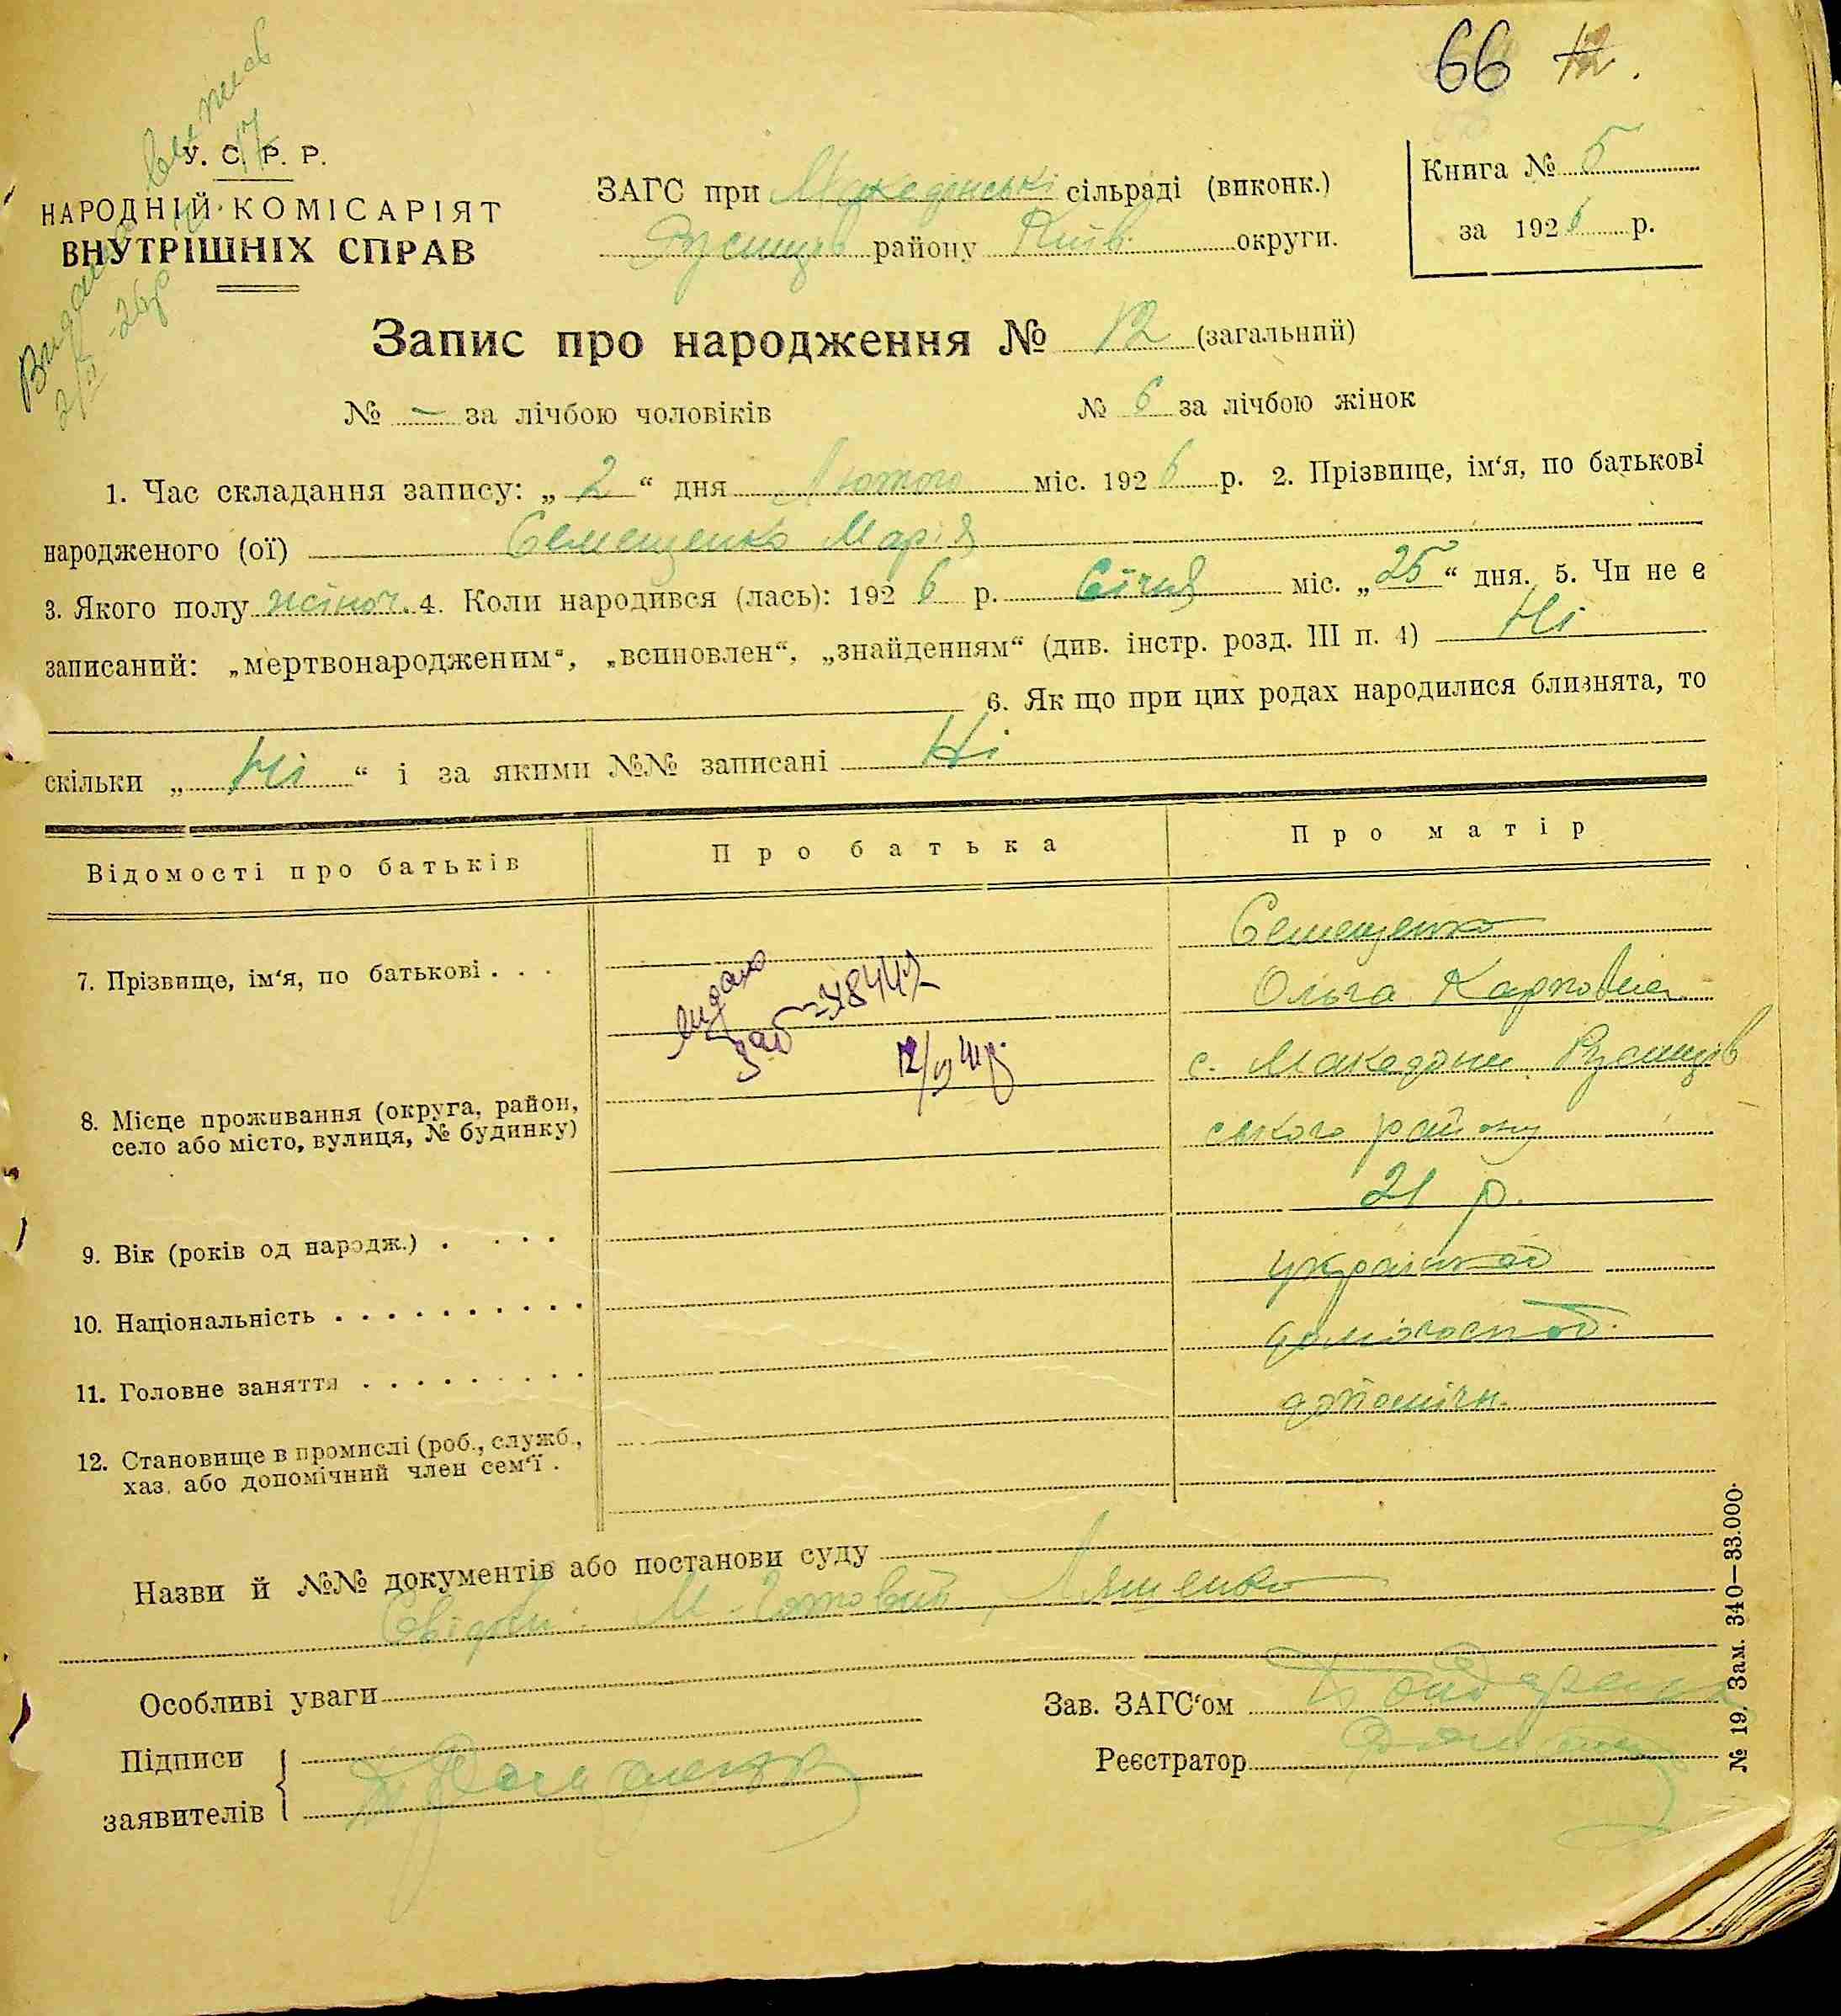 66 12.
У. С. Р. Р.
НАРОДНІЙ КОМІСАРІЯТ
ВНУТРІШНІХ СПРАВ
ЗАГС при Македонські сільраді (виконк.)
району Київ. округи.
Книга № 5
за 1926 р.
Запис про народження № 12 (загальний)
№ — за лічбою чоловіків № 6 за лічбою жінок
1. Час складання запису: „ 2 “ дня Лютого міс. 1926 р. 2. Прізвище, ім‘я, по батькові
народженого (ої) Семещенко Марія
3. Якого полу жіноч. 4. Коли народився (лась): 1926 р. Січня міс. „ 25 “ дня. 5. Чи не є
записаний: „мертвонародженим“, „всиновлен“, „знайденням“ (див. інстр. розд. III п. 4) Ні
6. Як що при цих родах народилися близнята, то
скільки „ Ні “ і за якими №№ записані Ні
Відомості про батьків Про батька Про матір
7. Прізвище, ім‘я, по батькові . . .
Семещенко
Ольга Карповна
видано
12/VI 41р.
8. Місце проживання (округа, район,
село або місто, вулиця, № будинку)
с. Македони
ського району
9. Вік (років од народж.) . . . . 21 р.
10. Національність . . . . . . . . . .
11. Головне заняття . . . . . . . . . домогоспод.
12. Становище в промислі (роб., служб.,
хаз. або допомічний член сем‘ї . допомічн.
Назви й №№ документів або постанови суду
Свідки: М. Ляшенко
Особливі уваги
Зав. ЗАГС‘ом
Підписи
заявителів
Реєстратор
№ 19. Зам. 340—33.000.